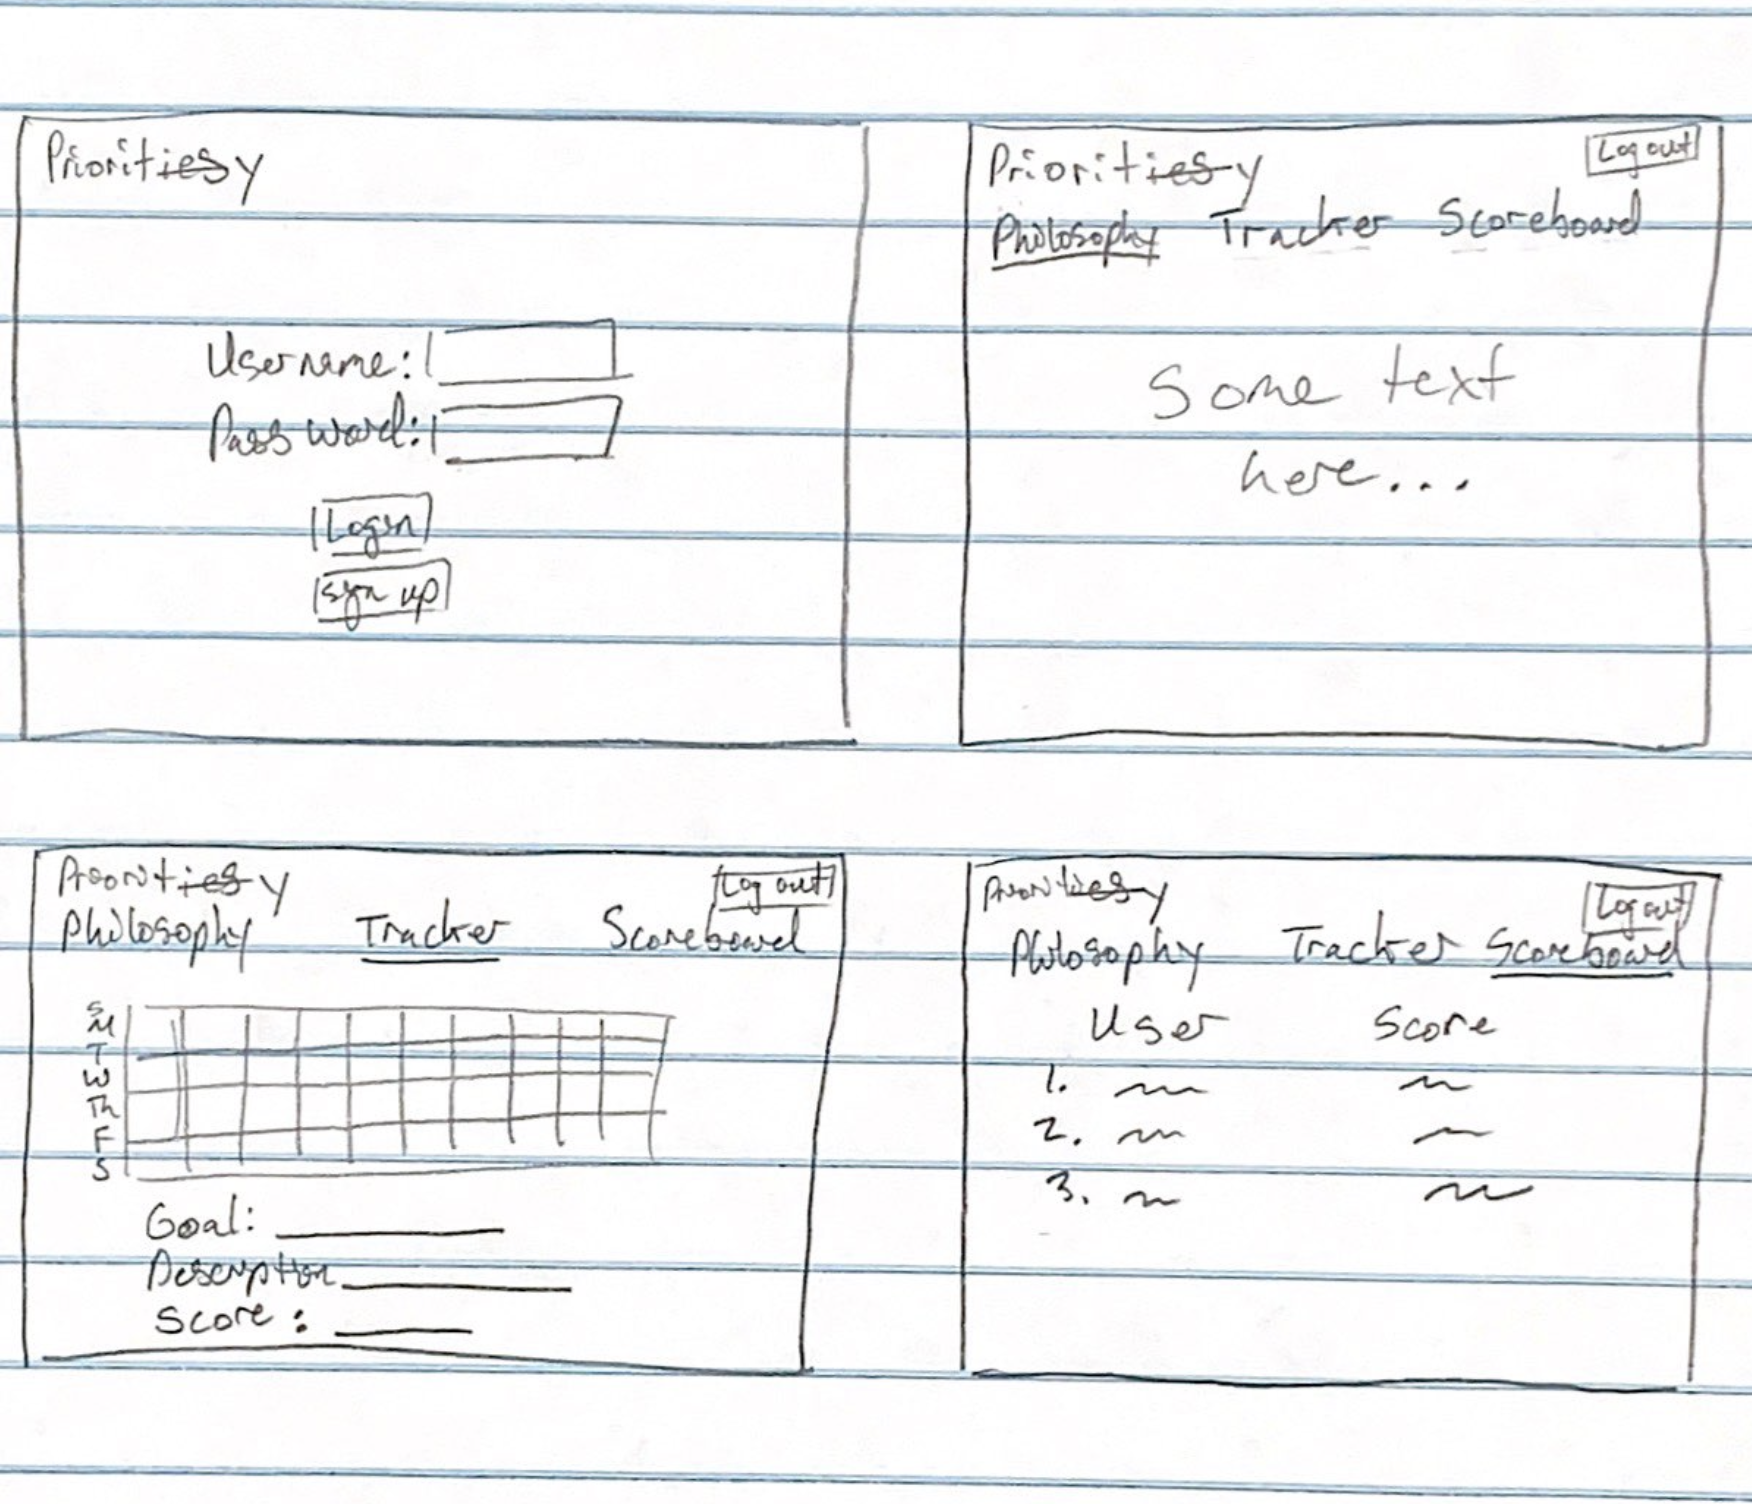 Prioritiesy
Username:
Password:
Login
sign up
Prioritiesy
Log out
Philosophy Tracker Scoreboard
Some text
here...
Prioritiesy
Log out
Philosophy Tracker Scoreboard
S
M
T
W
Th
F
S
Goal:
Description
Score:
Prioritiesy
Log out
Philosophy Tracker Scoreboard
User Score
1.
2.
3.